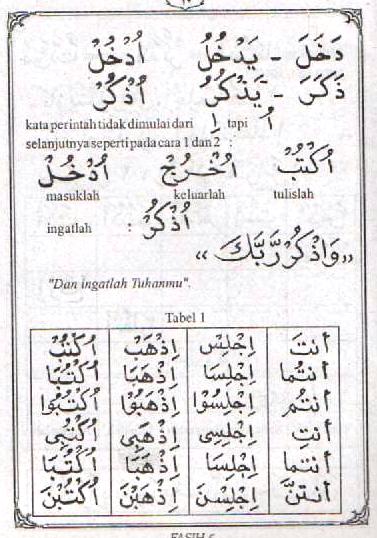 دَخَلَ - يَدْخُلُ أُدْخُلْ
ذَكَرَ - يَذْكُرُ أُذْكُرْ
kata perintah tidak dimulai dari إِ tapi أُ
selanjutnya seperti pada cara 1 dan 2 :
اُكْتُبْ اُخْرُجْ اُدْخُلْ
masuklah keluarlah tulislah
ingatlah : اُذْكُرْ
«وَاذْكُرْ رَبَّكَ»
"Dan ingatlah Tuhanmu".
Tabel 1
أَنْتَ اِجْلِسْ اِذْهَبْ اُكْتُبْ
أَنْتُمَا اِجْلِسَا اِذْهَبَا اُكْتُبَا
أَنْتُمْ اِجْلِسُوْا اِذْهَبُوْا اُكْتُبُوْا
أَنْتِ اِجْلِسِى اِذْهَبِى اُكْتُبِى
أَنْتُمَا اِجْلِسَا اِذْهَبَا اُكْتُبَا
أَنْتُنَّ اِجْلِسْنَ اِذْهَبْنَ اُكْتُبْنَ